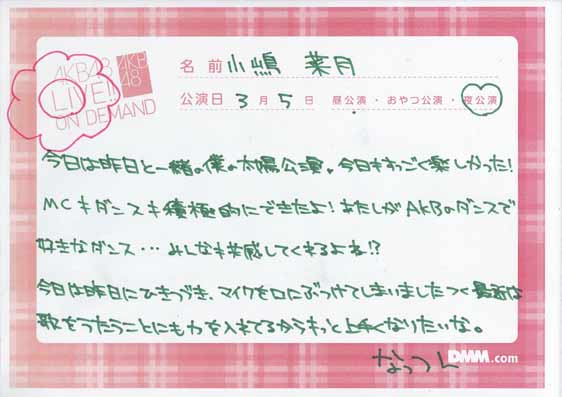 AKB48 LIVE!! ON DEMAND
AKB48
名前 小嶋 菜月
公演日 3月5日 昼公演・おやつ公演・夜公演
今日は昨日と一緒の僕の太陽公演。今日もすっごく楽しかった!
MCもダンスも積極的にできたよ!あたしがAKBのダンスで
好きなダンス・・・みんなも共感してくれるよね!?
今日は昨日にひきつづき、マイクを口にぶつけてしまいました 最近は
歌をうたうことにも力を入れてるからもっと上手くなりたいな。
なっつん
DMM.com